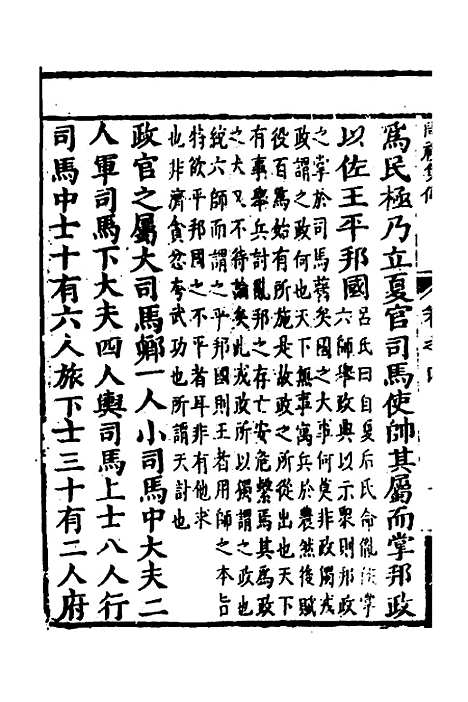 爲民極乃立夏官司馬使帥其屬而掌邦政
以佐王平邦國
呂氏曰自夏后氏命胤侯掌
六師舉政典以示衆則邦政
之掌於司馬舊矣國之大事何莫非政獨戎
政謂之政何也天下無事寓兵於農然後賦
役百爲始有所施是故政之所從出也天下
有事舉兵討亂邦之存亡安危繫焉其爲政
之大又不待論矣此戎政所以獨謂之政也
統六師而謂之平邦國則王者用師之本旨
特欲平邦國之不平者耳非有他求
也非濟貪忿夸武功也所謂天討也
政官之屬大司馬卿一人小司馬中大夫二
人軍司馬下大夫四人輿司馬上士八人行
司馬中士十有六人旅下士三十有二人府